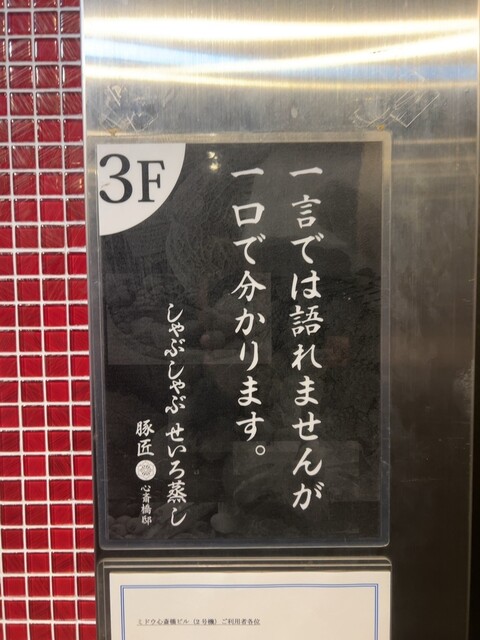 3F
一言では語れませんが
一口で分かります。
しゃぶしゃぶ せいろ蒸し
豚匠 心斎橋邸
ミドウ心斎橋ビル（2号機）ご利用者各位